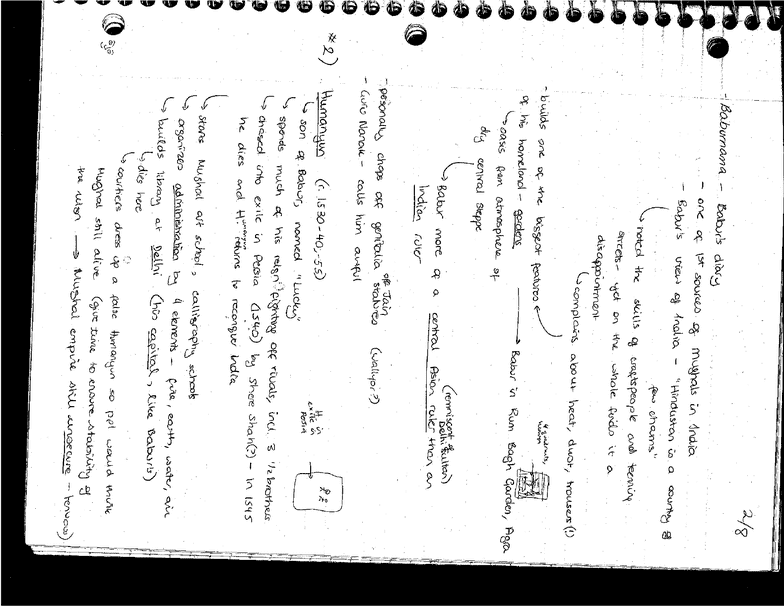 2/8
- Baburnama - Babur's diary
- one of 1st sources of mughals in India
- Babur's view of India - "Hindustan is a country of
few charms"
↳ noted the skills of craftspeople and teeming
streets - yet on the whole finds it a
disappointment
↳ complains about heat, dust, trousers(!)
- builds one of the biggest features
of his homeland - gardens → Babur in Rum Bagh Garden, Agra
↳ oasis from atmosphere of
dry central steppe
(reminiscent of
Delhi Sultan)
↳ Babur more of a central Asian ruler than an
Indian ruler
- personally chops off genitalia off Jain
statues (Waliyor?)
- Guru Nanak - calls him awful
*2) Humanyun (r. 1530-40, -55)
↳ son of Babur, named "Lucky"
H. in
exile in
Persia
↳ spends much of his reign fighting off rivals, incl 3 ½ brothers
↳ chased into exile in Persia (1540) by Shere Shah(?) - in 1545
he dies and Humanyun returns to reconquer India
↳ starts Mughal art school, calligraphy schools
↳ organizes administration by 4 elements - fire, earth, water, air
↳ builds library at Delhi (his capital, like Babur's)
↳ dies here
↳ courtiers dress up a false Humanyun so ppl would think
Mughal still alive (give time to ensure stability of
the reign → Mughal empire still unsecure -